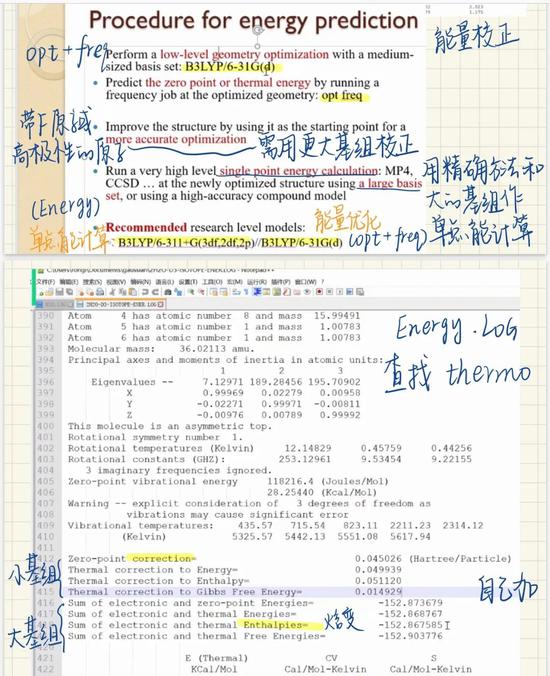 Procedure for energy prediction
2.023
1.175
78
opt + freq
能量校正
Perform a low-level geometry optimization with a medium-
sized basis set: B3LYP/6-31G(d)
• Predict the zero point or thermal energy by running a
frequency job at the optimized geometry: opt freq
带F原子或
高极性的原子
• Improve the structure by using it as the starting point for a
more accurate optimization
需用更大基组校正
• Run a very high level single point energy calculation: MP4,
CCSD … at the newly optimized structure using a large basis
set, or using a high-accuracy compound model
用精确方法和
大的基组作
单点能计算
(Energy)
单点能计算
能量优化
• Recommended research level models:
B3LYP/6-311+G(3df,2df,2p)//B3LYP/6-31G(d)
(opt+freq)
390 Atom 4 has atomic number 8 and mass 15.99491
391 Atom 5 has atomic number 1 and mass 1.00783
392 Atom 6 has atomic number 1 and mass 1.00783
393 Molecular mass: 36.02113 amu.
394 Principal axes and moments of inertia in atomic units:
395 1 2 3
396 Eigenvalues -- 7.12971 189.28456 195.70902
397 X 0.99969 0.02279 0.00958
398 Y -0.02271 0.99971 -0.00811
399 Z -0.00976 0.00789 0.99992
400 This molecule is an asymmetric top.
401 Rotational symmetry number 1.
402 Rotational temperatures (Kelvin) 12.14829 0.45759 0.44256
403 Rotational constants (GHZ): 253.12961 9.53454 9.22155
404 3 imaginary frequencies ignored.
405 Zero-point vibrational energy 118216.4 (Joules/Mol)
406 28.25440 (Kcal/Mol)
407 Warning -- explicit consideration of 3 degrees of freedom as
408 vibrations may cause significant error
409 Vibrational temperatures: 435.57 715.54 823.11 2211.23 2314.12
410 (Kelvin) 5325.57 5442.13 5551.08 5617.94
411
Zero-point correction= 0.045026 (Hartree/Particle)
Thermal correction to Energy= 0.049939
Thermal correction to Enthalpy= 0.051120
415 Thermal correction to Gibbs Free Energy= 0.014929
Sum of electronic and zero-point Energies= -152.873679
Sum of electronic and thermal Energies= -152.868767
Sum of electronic and thermal Enthalpies= -152.867585
Sum of electronic and thermal Free Energies= -152.903776
421 E (Thermal) CV S
422 KCal/Mol Cal/Mol-Kelvin Cal/Mol-Kelvin
Energy.LOG
查找 thermo
小基组
大基组
焓变
自己加